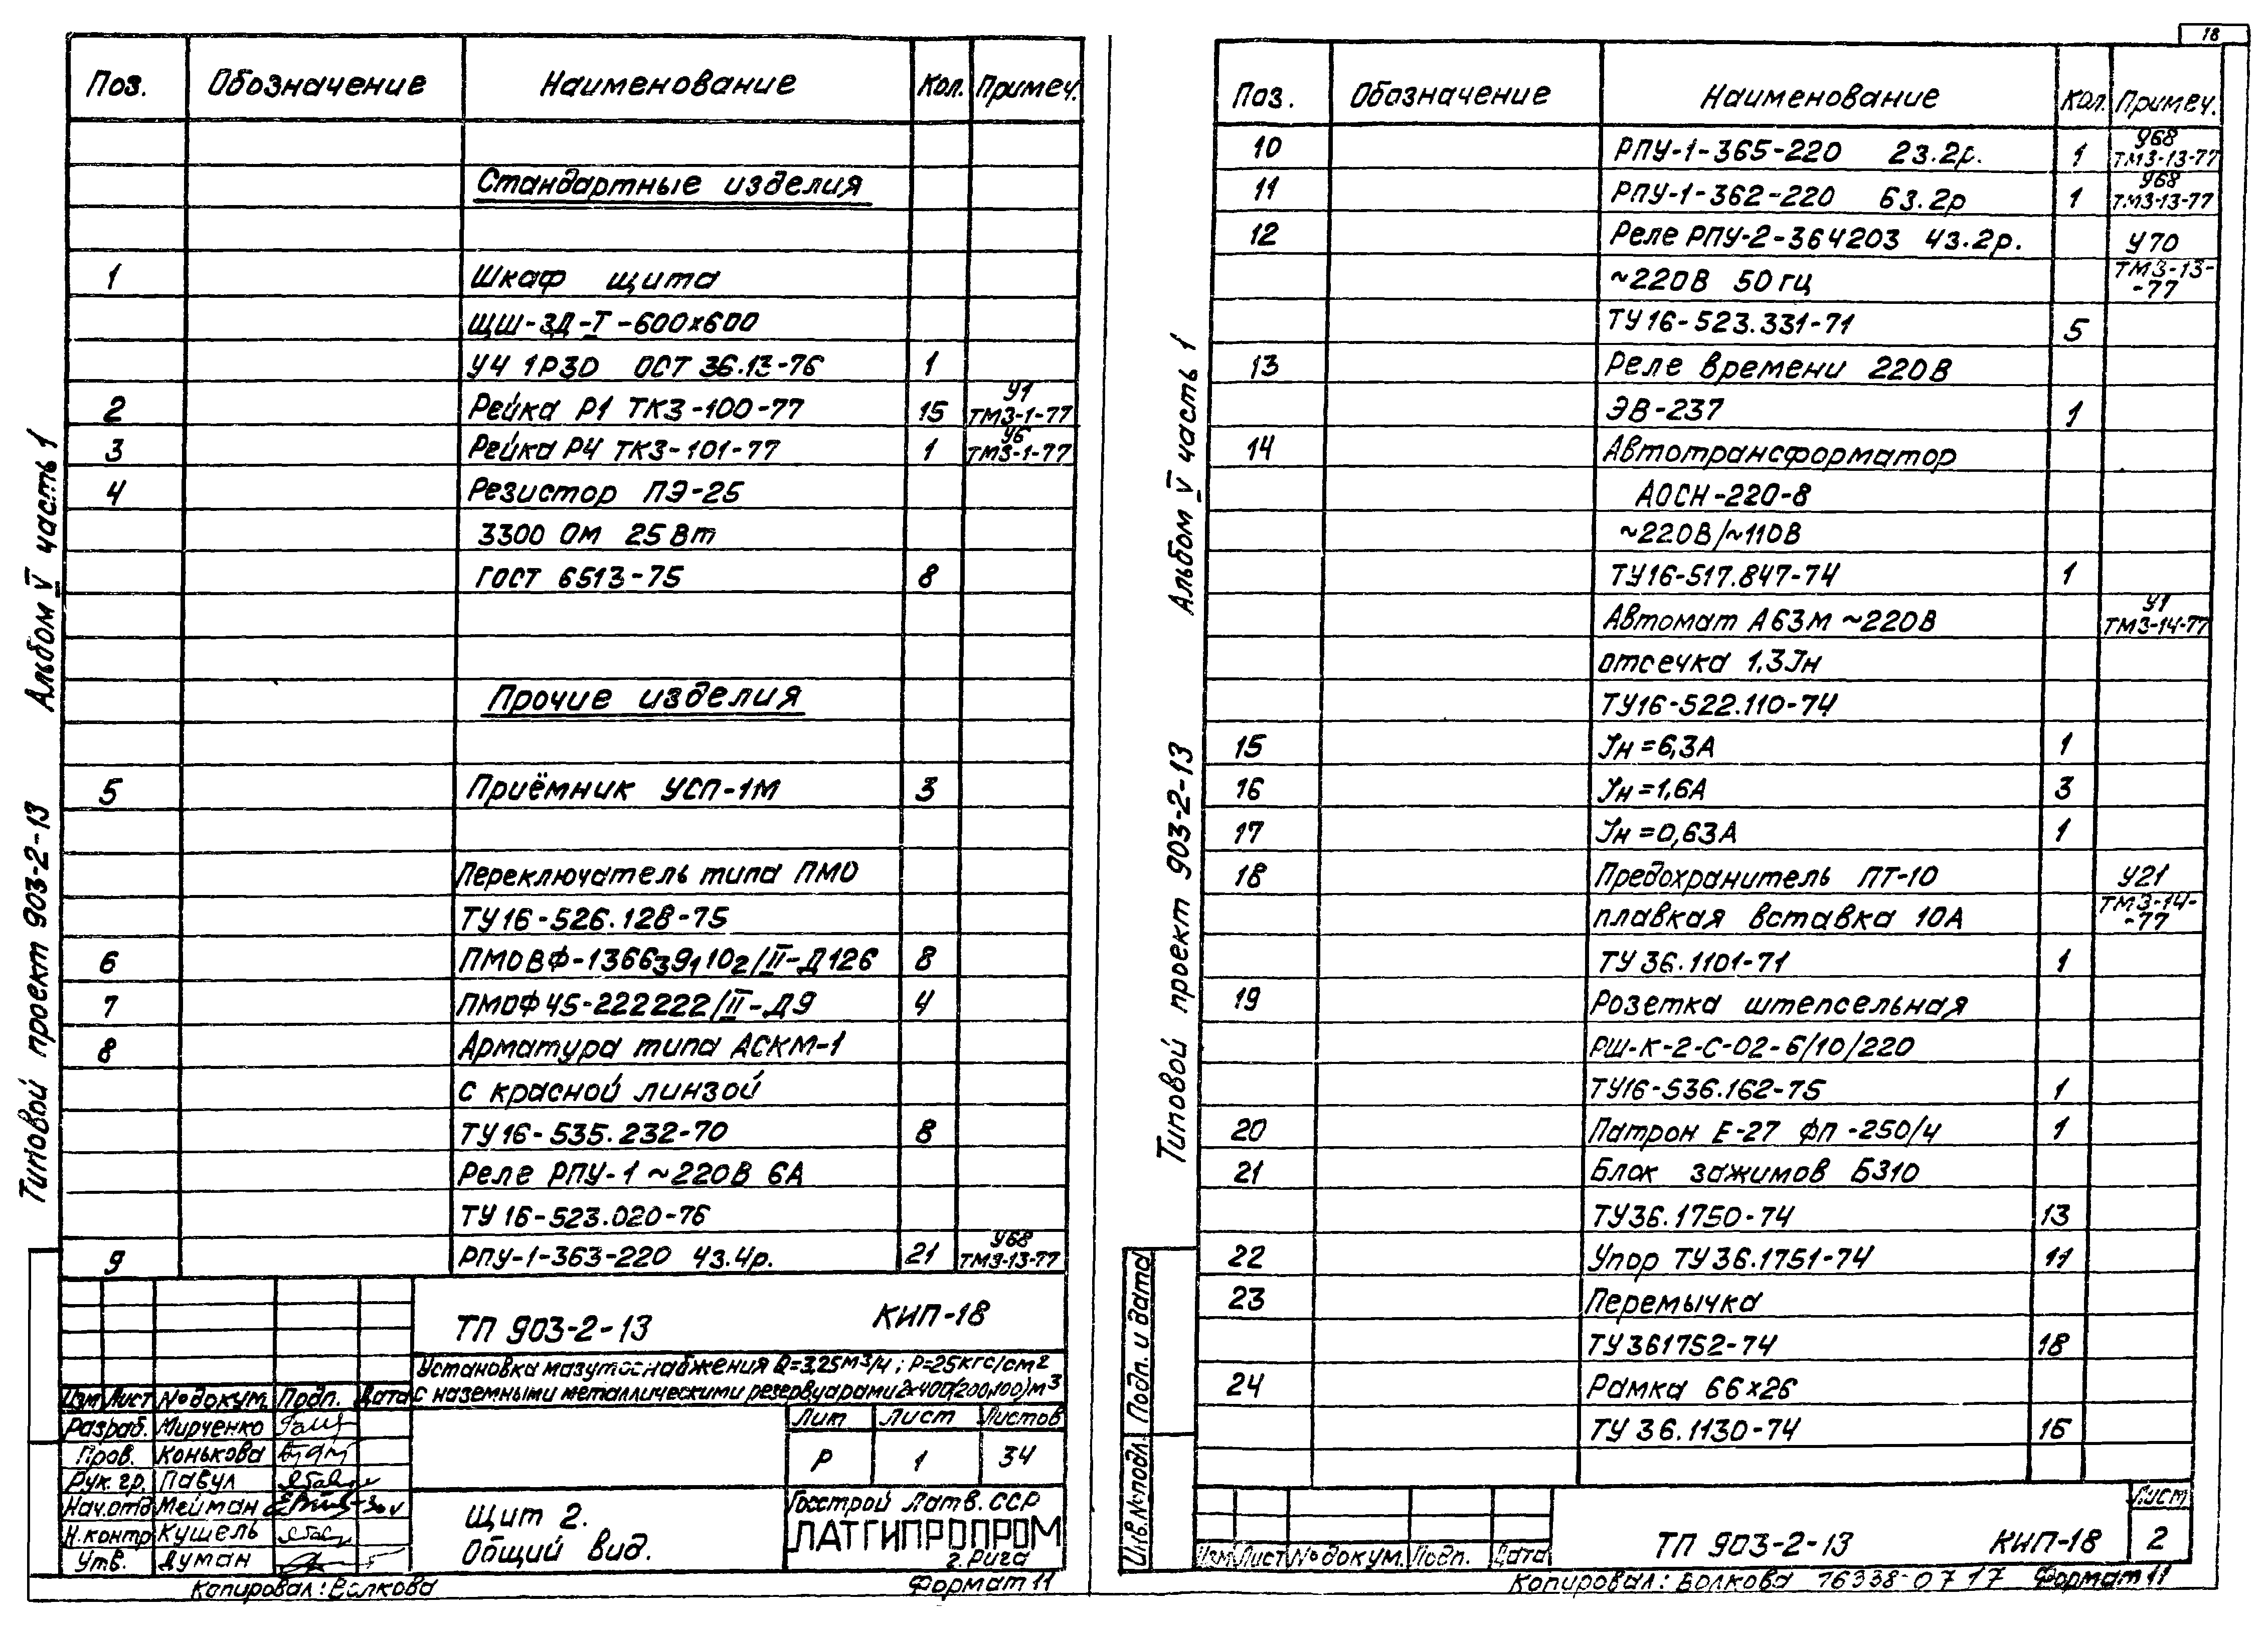 Поз. Обозначение Наименование Кол. Примеч.
Стандартные изделия
1 Шкаф щита
ЩШ-ЗД-I-600х600
У4 1Р30 ОСТ 36.13-76 1
У1
2 Рейка Р1 ТК3-100-77 15 ТМ3-1-77
У6
3 Рейка Р4 ТК3-101-77 1 ТМ3-1-77
4 Резистор ПЭ-25
3300 Ом 25Вт
ГОСТ 6513-75 8
Прочие изделия
5 Приёмник УСП-1М 3
Переключатель типа ПМО
ТУ16-526.128-75
6 ПМОВФ-1366391102/II-Д126 8
7 ПМОФ45-222222/II-Д9 4
8 Арматура типа АСКМ-1
с красной линзой
ТУ16-535.232-70 8
Реле РПУ-1 ~220В 6А
ТУ 16-523.020-76
У68
9 РПУ-1-363-220 43.4р. 21 ТМ3-13-77
ТП 903-2-13 КИП-18
Установка мазутоснабжения Q=3,25м3/ч; Р=25кгс/см2
с наземными металлическими резервуарами 2х400(200,100)м3
Изм Лист № докум. Подп. Дата
Разраб. Мирченко
Пров. Конькова
Рук. гр. Павул
Нач.отд Мейман
Н.контр Кушель
Утв. Думан
Лит Лист Листов
Р 1 34
Щит 2.
Общий вид.
Госстрой Латв. ССР
ЛАТГИПРОПРОМ
г. Рига
Копировал: Волкова Формат 11
Типовой проект 903-2-13 Альбом V часть 1
18
Поз. Обозначение Наименование Кол. Примеч.
У68
10 РПУ-1-365-220 23.2р. 1 ТМ3-13-77
У68
11 РПУ-1-362-220 63.2р 1 ТМ3-13-77
12 Реле РПУ-2-364203 43.2р. У70
~220В 50гц ТМ3-13-
-77
ТУ16-523.331-71 5
13 Реле времени 220В
ЭВ-237 1
14 Автотрансформатор
АОСН-220-8
~220В/~110В
ТУ16-517.847-74 1
У1
Автомат А63М ~220В ТМ3-14-77
отсечка 1,3Iн
ТУ16-522.110-74
15 Iн=6,3А 1
16 Iн=1,6А 3
17 Iн=0,63А 1
18 Предохранитель ПТ-10 У21
плавкая вставка 10А ТМ3-14-
-77
ТУ 36.1101-71 1
19 Розетка штепсельная
РШ-К-2-С-02-6/10/220
ТУ16-536.162-75 1
20 Патрон Е-27 ФП-250/4 1
21 Блок зажимов БЗ10
ТУ36.1750-74 13
22 Упор ТУ36.1751-74 11
23 Перемычка
ТУ361752-74 18
24 Рамка 66х26
ТУ 36.1130-74 16
Изм Лист № докум. Подп. Дата
ТП 903-2-13 КИП-18
Лист
2
Копировал: Волкова 16338-07 17 Формат 11
Типовой проект 903-2-13 Альбом V часть 1
Инв.№подл. Подп. и дата